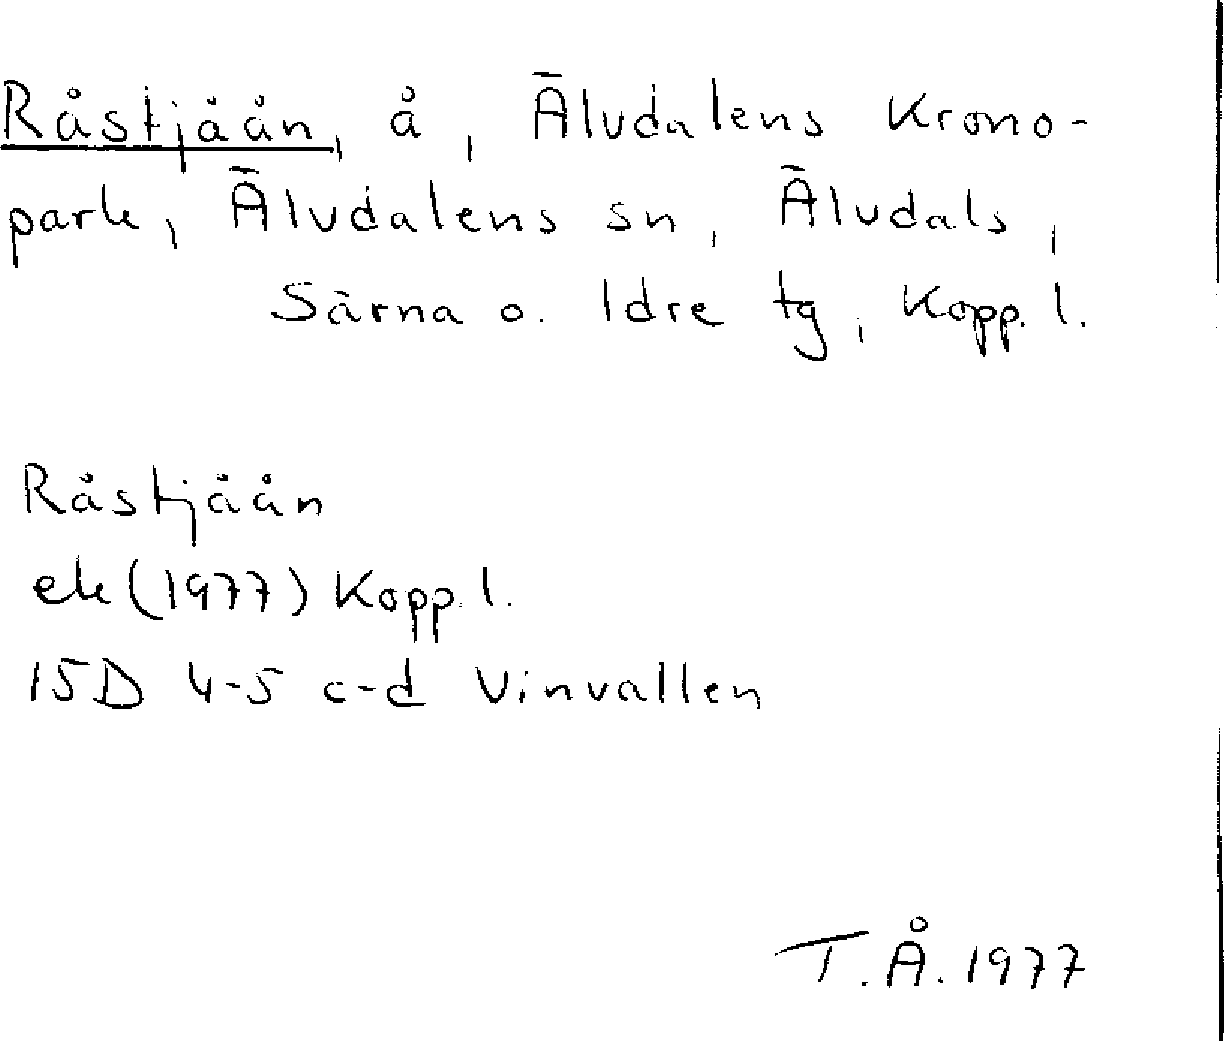 Råstjåån, å, Älvdalens Krono-
park, Älvdalens sn, Älvdals,
Särna o. Idre tg, Kopp. l.
Råstjåån
ek (1977) Kopp. l.
15D 4-5 c-d Vinvallen
T. Å. 1977